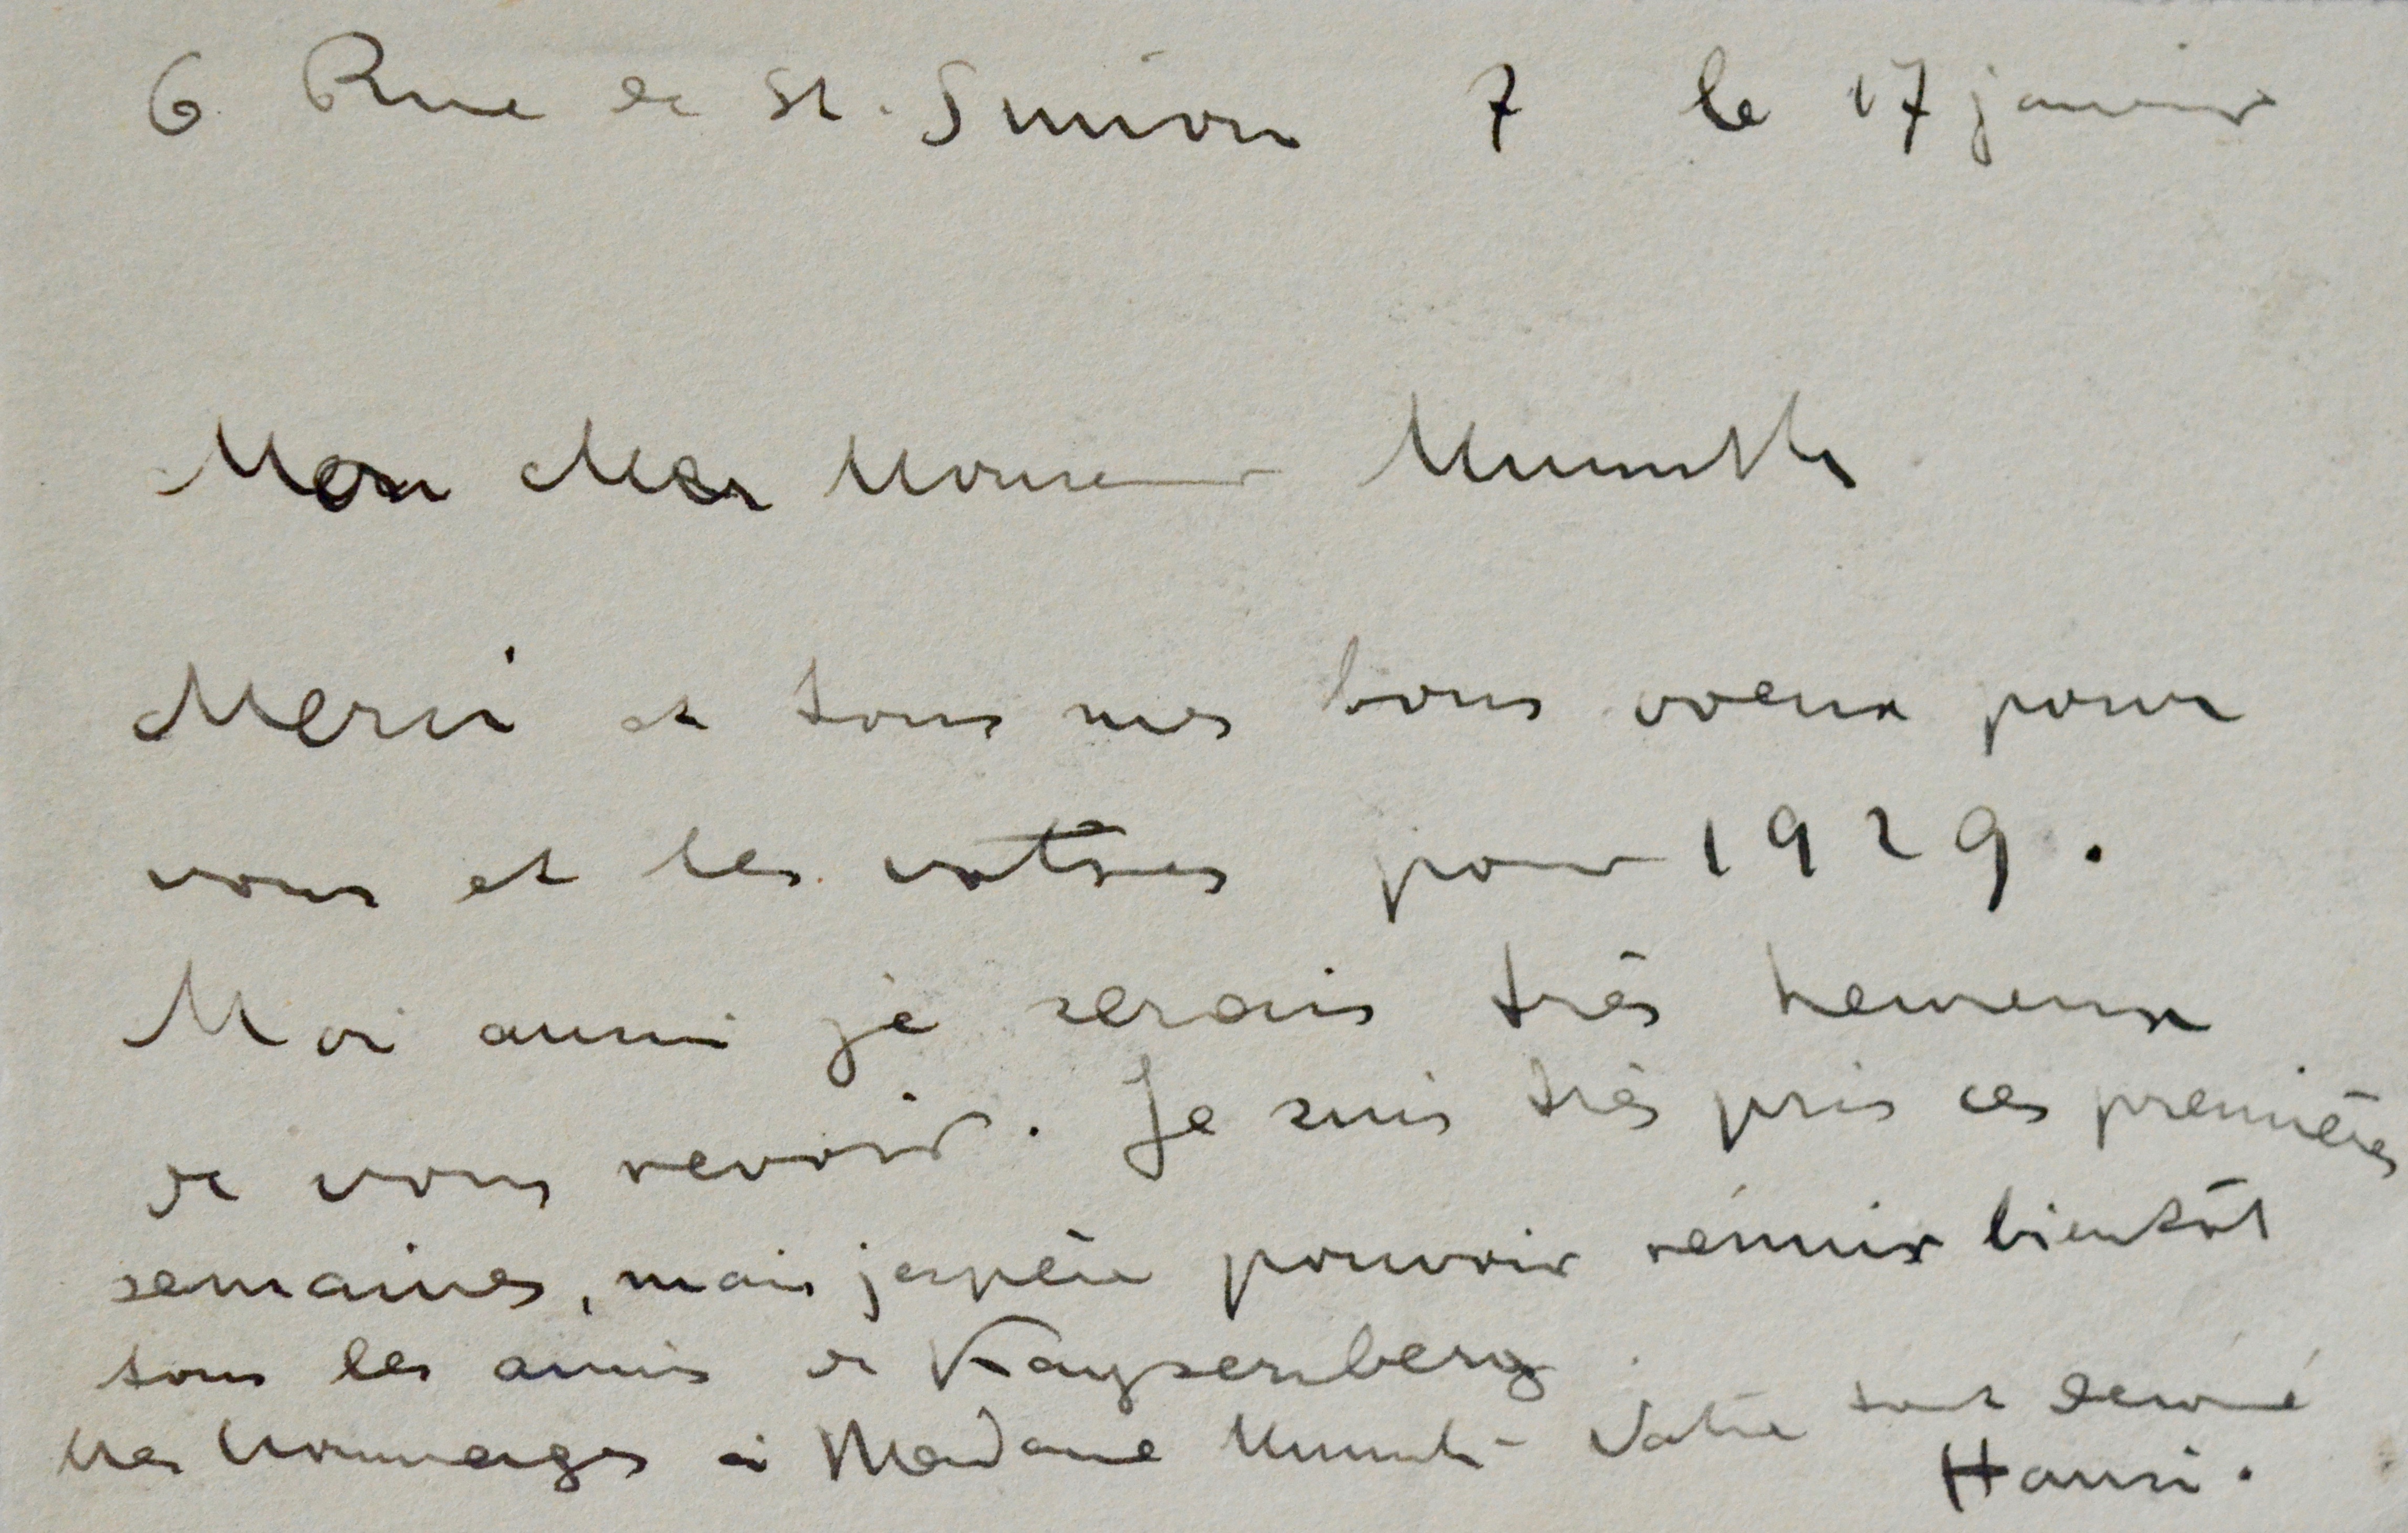 6 Rue de St. Simon 7 le 17 janvier
Mon cher Monsieur
Merci et tous mes bons voeux pour
vous et les votres pour 1929.
Moi aussi je serais très heureux
de vous revoir. Je suis très pris ces premières
semaines, mais j'espère pouvoir réunir bientôt
tous les amis de Kaysersberg
Mes hommages à Madame Votre tout dévoué
Hansi.